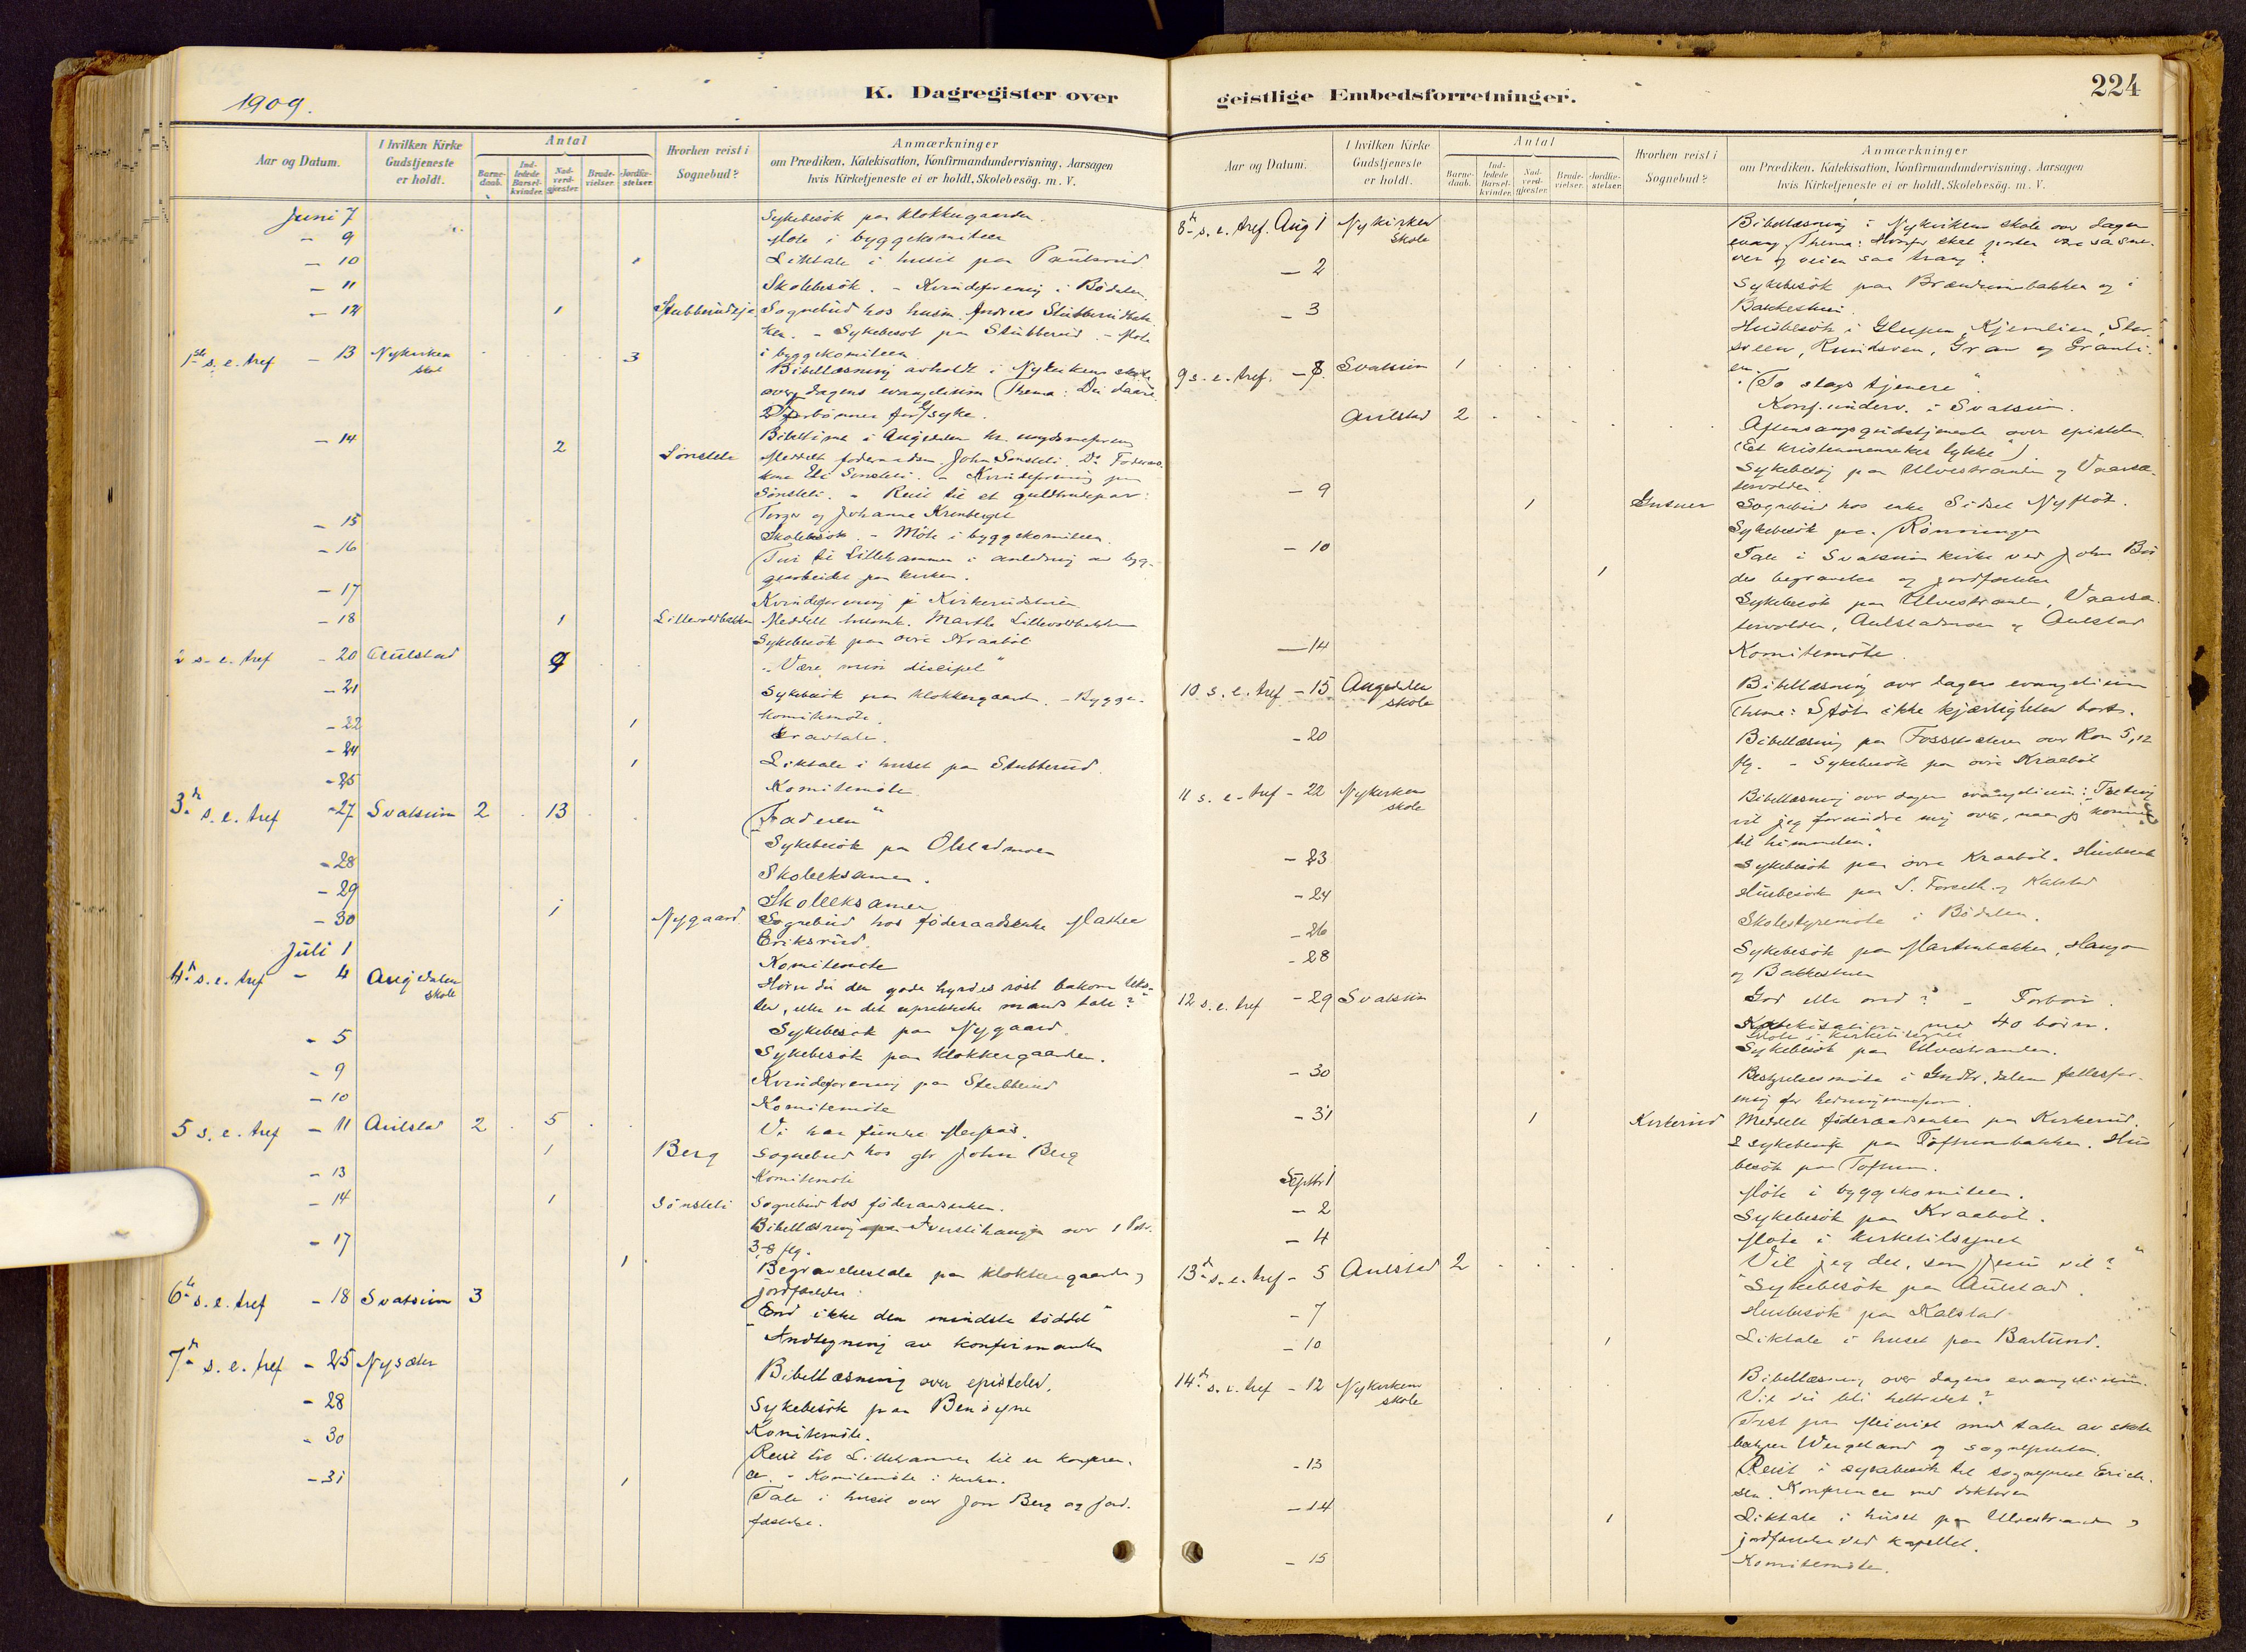 1909.
K. Dagregister over
Aar og Datum.
I hvilken Kirke Gudstjeneste er holdt.
Antal
Barne-daab.
Ind-ledede Barsel-kvinder.
Nad-verd-gjester.
Brude-vielser.
Jordfæ-stelser.
Hvorhen reist i Sognebud?
Anmærkninger
om Prædiken, Katekisation, Konfirmandundervisning, Aarsagen
hvis Kirketjeneste ei er holdt, Skolebesög. m. V.
Juni 7 Sykebesök paa Klokkergaarden.
- 9 Møte i byggekomiteen
- 10 1 Liktale i huset paa Paulsrud
- 11 Skolebesök. - Kvindeforening i Bödalen.
- 12 1 Sognebud hos husm. Andreas Stubberudbak-
ken. - Sykebesök paa Stubberud. - Møte
i byggekomiteen
1ste s. e. tref - 13 Nykirken skole 3 Bibellæsning avholdt i Nykirkens skole
over dagens evangelium (Thema: Du daare
2 Forbønner for syke.
- 14 2 Sønsteli
Kvindeforening paa
Sønsteli. - Reise til et guldbrudepar:
Torger og Johanne
- 15 Skolebesök. - Möte i byggekomiteen.
- 16 Tur til Lillehammer i anledning av byg-
gearbeidet paa kirken.
- 17 Kvindeforening
- 18 1 Lillevoldbakken Meddelt Marthe Lillevoldbakken
Sykebesök paa övre Kraabøl
2 s. e. tref - 20 Aulstad 9 "Være min discipel"
- 21 Sykebesök paa Klokkergaarden. - Bygge-
komitemöte.
- 22 1 Gravtale.
- 24 1 Liktale i huset paa Stubberud.
- 25 Komitemöte
3de s. e. tref - 27 Svatsum 2 13 "Faderen"
Sykebesök paa Olstadmoen
- 28 Skoleeksamen.
- 29 Skoleeksamen
- 30 1 Nygaard. Sognebud hos föderaadsenke Mathea
Eriksrud.
Juli 1 Komitemöte
4de s. e. tref - 4 Augedalen skole Hører du den gode hyrdes röst bakom teks-
ten, eller er det upraktiske mands tale?
Sykebesök paa Nygaard.
- 5 Sykebesök paa Klokkergaarden.
- 9 Kvindeforening paa Stubberud
- 10 Komitemöte
5 s. e. tref - 11 Aulstad 2 5 Vi har fundet Messias.
1 Berg Sognebud hos gbr John Berg
- 13 Komitemöte
- 14 1 Sönsteli Sognebud hos föderaadsenken.
Bibellæsning over 1 Pet.
3,8 flg.
- 17 1 Begravelsestale paa Klokkergaarden og
jordfæstelse.
6te s. e. tref - 18 Svatsum 3 "End ikke den mindste töddel"
Andtegning av konfirmanter
7de s. e. tref - 25 Nysæter Bibellæsning over epistelen.
- 28 Sykebesök paa
- 30 Komitemöte.
Reise til Lillehammer til en konferen-
ce. - Komitemöte i kirken.
- 31 1 Tale i huset over Jon Berg og jord-
fæstelse.
geistlige Embedsforretninger.
224
Aar og Datum.
I hvilken Kirke Gudstjeneste er holdt.
Antal
Barne-daab.
Ind-ledede Barsel-kvinder.
Nad-verd-gjester.
Brude-vielser.
Jordfæ-stelser.
Hvorhen reist i Sognebud?
Anmærkninger
om Prædiken, Katekisation, Konfirmandundervisning, Aarsagen
hvis Kirketjeneste ei er holdt, Skolebesög. m. V.
8de s. e. tref. Aug 1 Nykirken skole Bibellæsning i Nykirken skole over dagens
evang. Thema: Hvorfor skal porten være saa sne-
ver og veien saa trang?
- 2 Sykebesök paa Brændumsbakken og i
Bakkestuen.
- 3 Husbesök i Glupen, Kjemlien,
Gran og Granli-
en.
9 s. e. tref. - 8 Svatsum 1 "To slags tjenere".
Konf. underv. i Svatsum.
Aulstad 2 Aftensangsgudstjeneste over epistelen.
(Et kristenmenneskes lykke)
Sykebesøg paa Ulvestranden og
- 9 1 Sognebud hos enke Sidsel Nyfløt.
Sykebesök paa Rønningen
- 10 1 Tale i Svatsum kirke ved John
begravelse og jordfæstelse
Sykebesök paa Ulvestranden,
Aulstadmoen og Aulstad
- 14 Komitemöte.
10 s. e. tref - 15 Augedalen skole Bibellæsning over dagens evangelium
Thema: Stöt ikke kjærligheten bort.
- 20 Bibellæsning paa over Rom 5,12
flg. - Sykebesök paa övre Kraaböl
11 s. e. tref - 22 Nykirken skole Bibellæsning over dagens evangelium: Tre ting
vil jeg forundre mig over, naar jeg kommer
til himmelen."
- 23 Sykebesök paa övre Kraaböl. Husbesök
- 24 Husbesök paa S. Forseth og Kalstad
- 26 Skolestyremöte i Bödalen.
- 28 Sykebesök paa Martinbakken, Haugen
og Bakkestuen
12 s. e. tref - 29 Svatsum God eller ond? - Forbön.
Katekisation med 40 barn.
Möte i kirketilsynet
Sykebesök paa Ulvestranden.
- 30 Bestyrelsesmöte i Gudbr.dalens fellesfor-
ening for hedningemissionen
- 31 1 Kirkerud Meddelt föderaadsenken paa Kirkerud.
2 sykebesök paa Toftumsbakken. Hus-
besök paa Toftum.
Septbr 1 Möte i byggekomiteen.
- 2 Sykebesök paa Kraaböl.
- 4 Möte i kirketilsynet
13de s. e. tref - 5 Aulstad 2 "Vil jeg det, som Jesus vil?"
Sykebesök paa Aulstad.
- 7 Husbesök paa Kalstad
- 10 1 Liktale i huset paa Barlund.
14de s. e. tref - 12 Nykirken skole Bibellæsning over dagens evangelium.
Vil du bli helbredet?
Fest med taler av
Wergeland og sognepresten.
- 13 Reist i sykebesök til sogneprest Erich-
sen. Konference med doktoren
- 14 1 Liktale i huset paa Ulvestranden og
jordfæstelse ved kapellet.
- 15 Komitemöte.